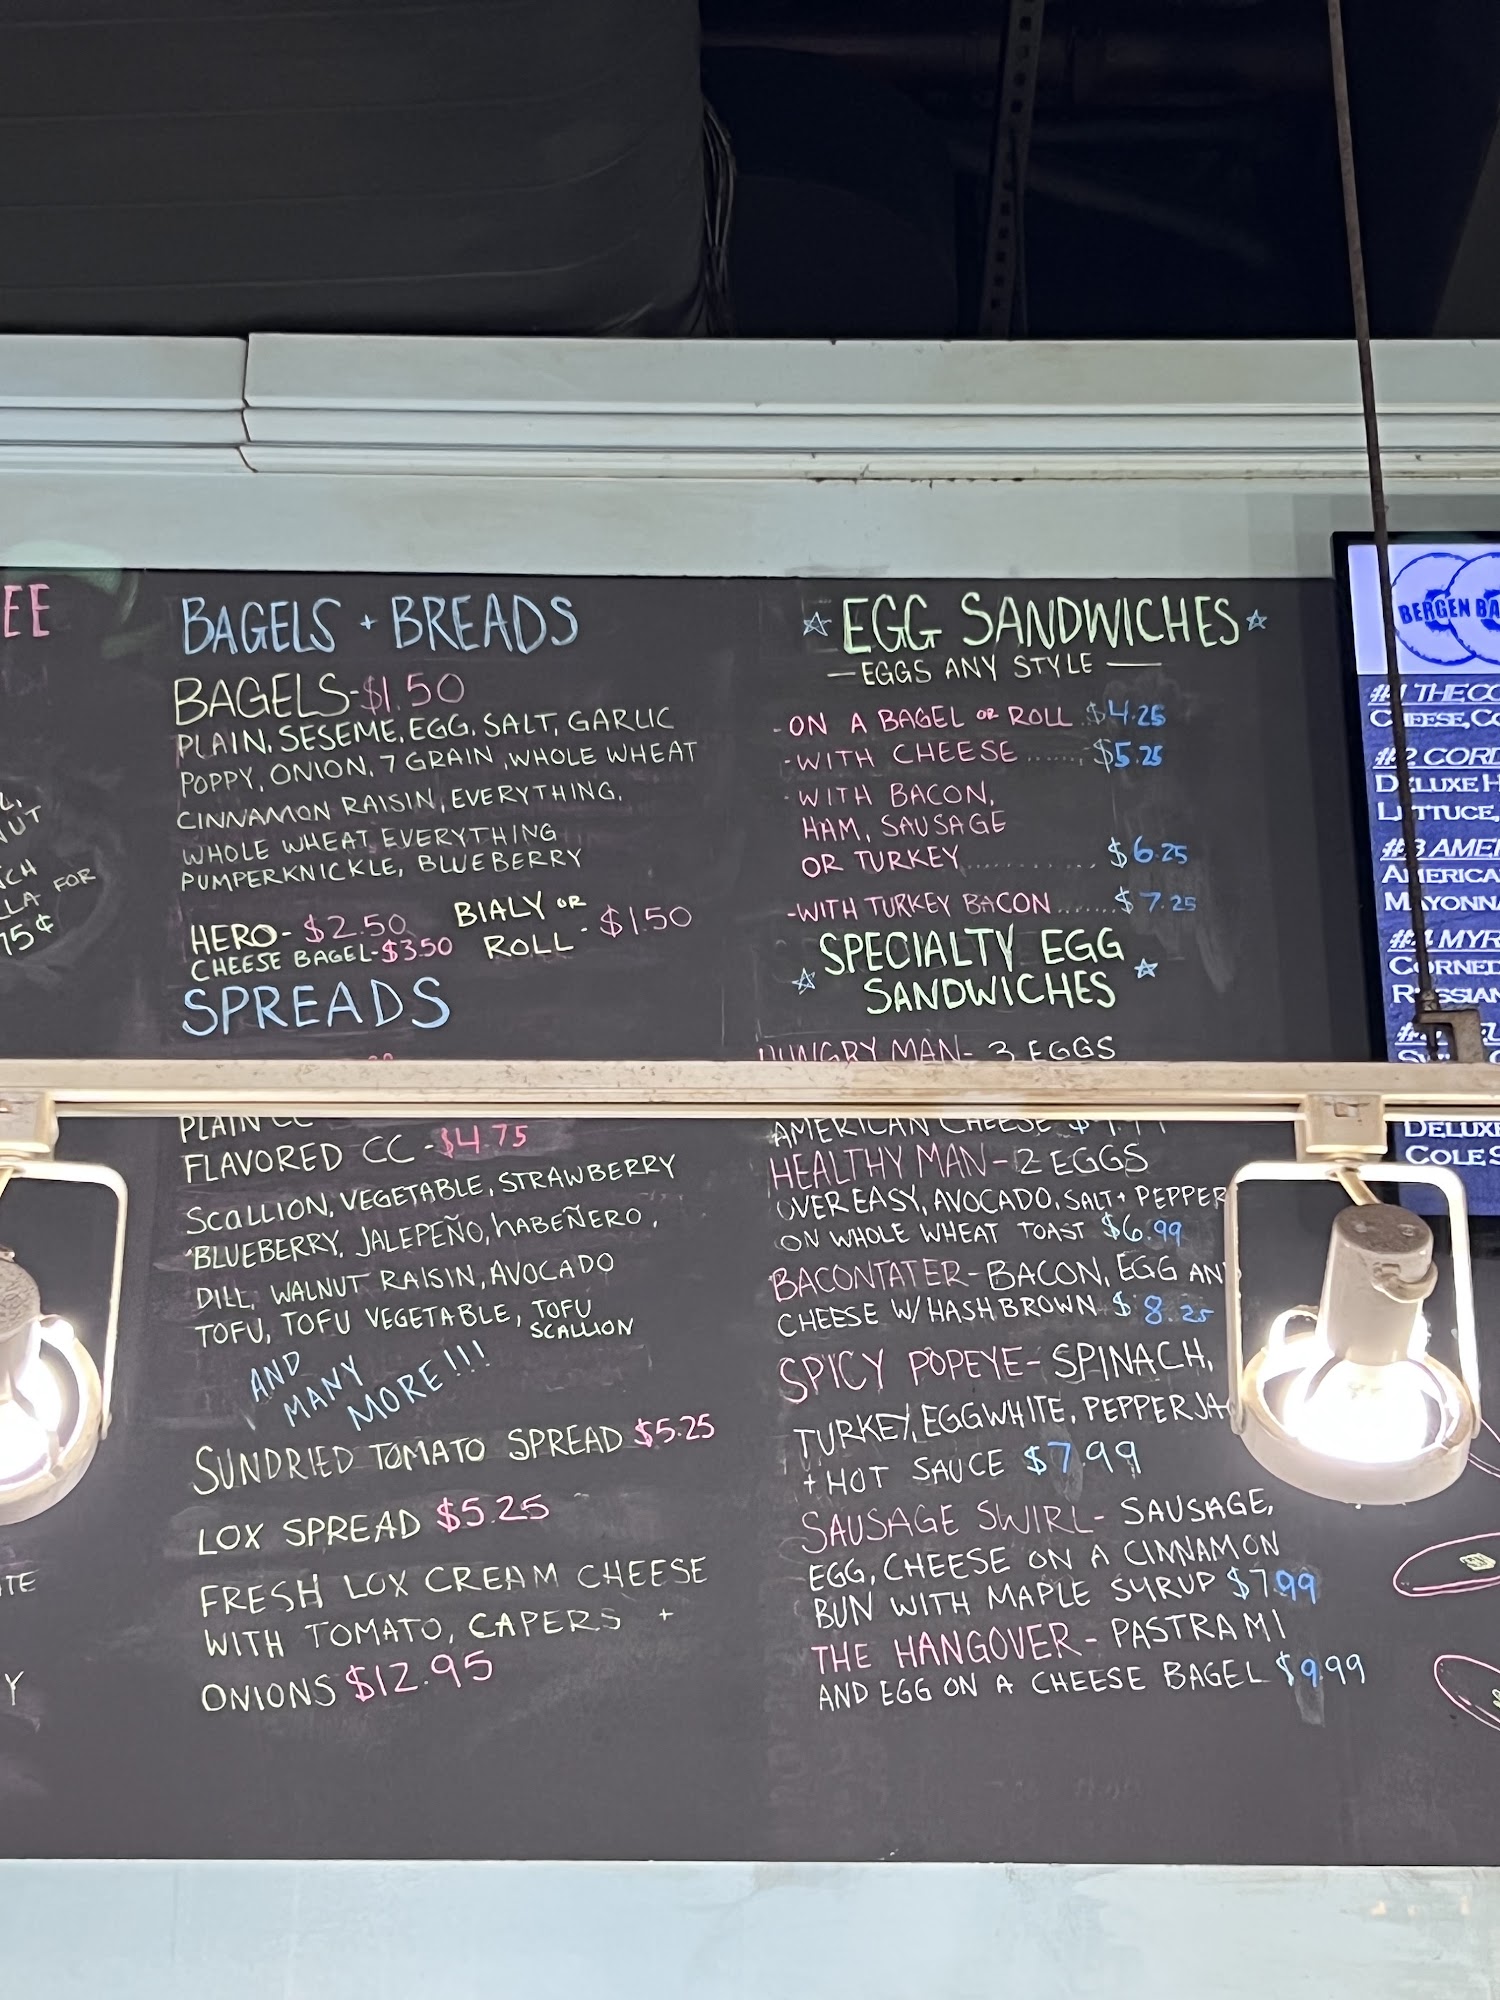 EE
UT
CH
LLA FOR
75¢
TE
Y
BAGELS + BREADS
BAGELS-$1.50
PLAIN, SESEME, EGG, SALT, GARLIC
POPPY, ONION, 7 GRAIN, WHOLE WHEAT
CINNAMON RAISIN, EVERYTHING,
WHOLE WHEAT EVERYTHING
PUMPERKNICKLE, BLUEBERRY
HERO- $2.50
CHEESE BAGEL-$3.50
BIALY OR
ROLL - $1.50
SPREADS
PLAIN CC
FLAVORED CC -$4.75
SCALLION, VEGETABLE, STRAWBERRY
BLUEBERRY, JALEPEÑO, HABEÑERO,
DILL, WALNUT RAISIN, AVOCADO
TOFU, TOFU VEGETABLE, TOFU
SCALLION
AND
MANY
MORE!!!
SUNDRIED TOMATO SPREAD $5.25
LOX SPREAD $5.25
FRESH LOX CREAM CHEESE
WITH TOMATO, CAPERS +
ONIONS $12.95
☆ EGG SANDWICHES ☆
— EGGS ANY STYLE —
-ON A BAGEL OR ROLL $4.25
-WITH CHEESE.......$5.25
-WITH BACON,
HAM, SAUSAGE
OR TURKEY............ $6.25
-WITH TURKEY BACON.......$7.25
☆ SPECIALTY EGG ☆
SANDWICHES
HUNGRY MAN- 3 EGGS
AMERICAN CHEESE
HEALTHY MAN- 2 EGGS
OVER EASY, AVOCADO, SALT + PEPPER
ON WHOLE WHEAT TOAST $6.99
BACONTATER- BACON, EGG AN
CHEESE W/ HASHBROWN $8.25
SPICY POPEYE- SPINACH,
TURKEY, EGGWHITE, PEPPER JA
+ HOT SAUCE $7.99
SAUSAGE SWIRL- SAUSAGE,
EGG, CHEESE ON A CINNAMON
BUN WITH MAPLE SYRUP $7.99
THE HANGOVER- PASTRAMI
AND EGG ON A CHEESE BAGEL $9.99
BERGEN BA
#1 THE CO
CHEESE, CO
#2 CORD
DELUXE H
LETTUCE,
#3 AMER
AMERICA
MAYONNA
#4 MYR
CORNED
RUSSIAN
DELUXE
COLE S